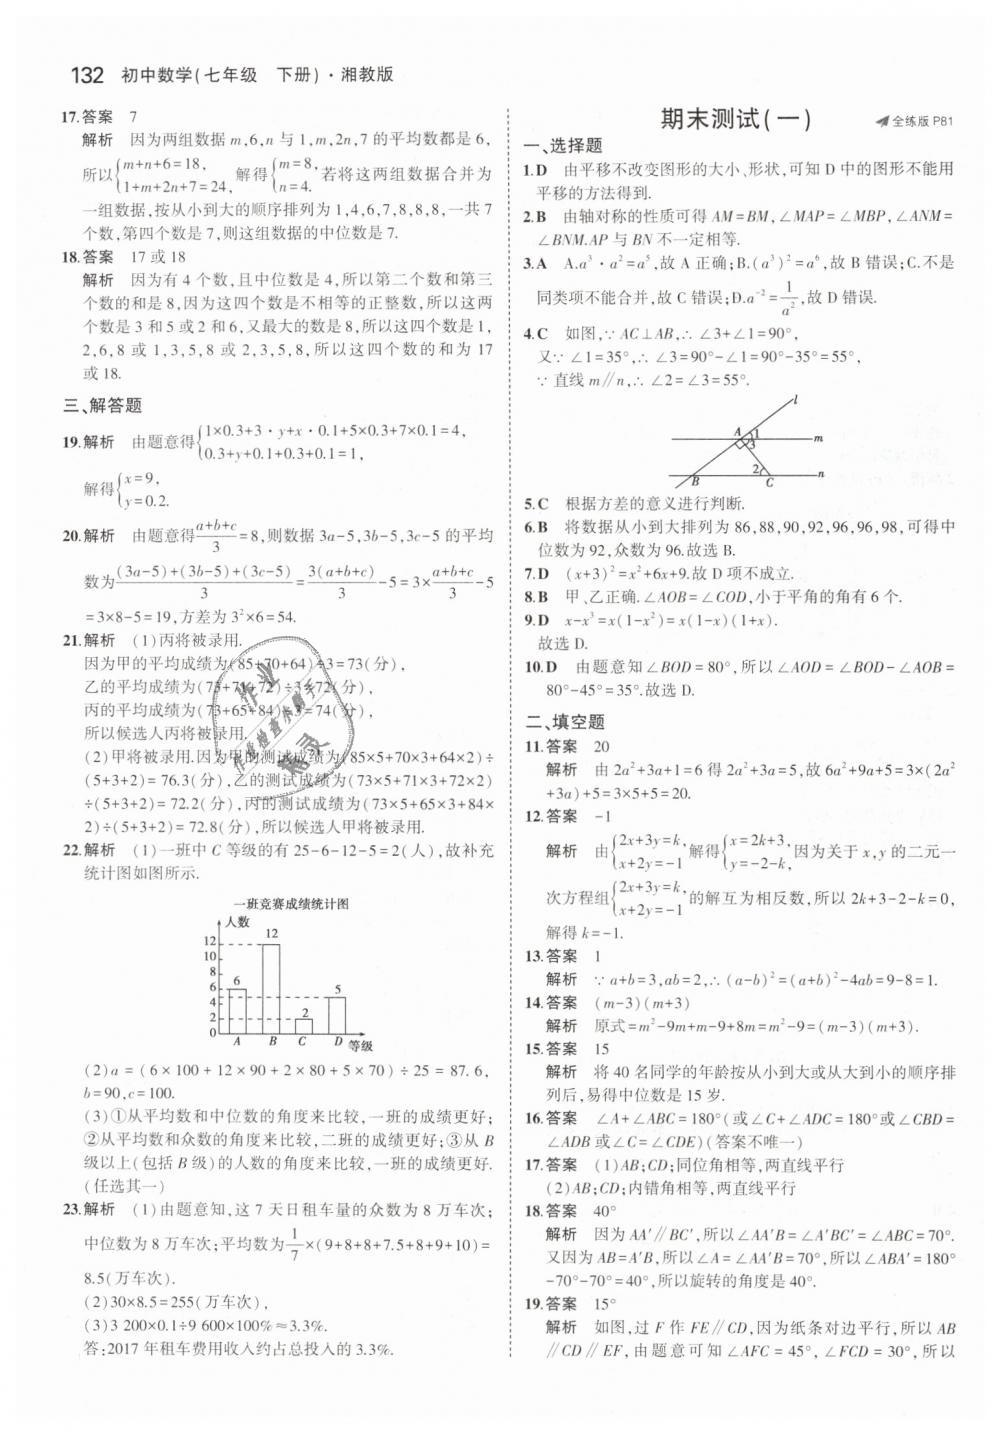 132 初中数学(七年级 下册)·湘教版
17.答案 7
解析 因为两组数据 m,6,n 与 1,m,2n,7 的平均数都是 6,
所以{m+n+6=18, 1+m+2n+7=24, 解得{m=8, n=4. 若将这两组数据合并为
一组数据,按从小到大的顺序排列为 1,4,6,7,8,8,8,一共 7
个数,第四个数是 7,则这组数据的中位数是 7.
18.答案 17 或 18
解析 因为有 4 个数,且中位数是 4,所以第二个数和第三
个数的和是 8,因为这四个数是不相等的正整数,所以这两
个数是 3 和 5 或 2 和 6,又最大的数是 8,所以这四个数是 1,
2,6,8 或 1,3,5,8 或 2,3,5,8,所以这四个数的和为 17
或 18.
三、解答题
19.解析 由题意得{1×0.3+3·y+x·0.1+5×0.3+7×0.1=4, 0.3+y+0.1+0.3+0.1=1,
解得{x=9, y=0.2.
20.解析 由题意得(a+b+c)/3=8,则数据 3a-5,3b-5,3c-5 的平均
数为((3a-5)+(3b-5)+(3c-5))/3=3(a+b+c)/3-5=3×(a+b+c)/3-5
=3×8-5=19,方差为 3²×6=54.
21.解析 (1)丙将被录用.
因为甲的平均成绩为(85+70+64)÷3=73(分),
乙的平均成绩为(73+71+72)÷3=72(分),
丙的平均成绩为(73+65+84)÷3=74(分),
所以候选人丙将被录用.
(2)甲将被录用.因为甲的测试成绩为(85×5+70×3+64×2)÷
(5+3+2)=76.3(分),乙的测试成绩为(73×5+71×3+72×2)
÷(5+3+2)=72.2(分),丙的测试成绩为(73×5+65×3+84×
2)÷(5+3+2)=72.8(分),所以候选人甲将被录用.
22.解析 (1)一班中 C 等级的有 25-6-12-5=2(人),故补充
统计图如图所示.
一班竞赛成绩统计图
人数
12
10
8
6
4
2
0
6 12 2 5
A B C D 等级
(2)a=(6×100+12×90+2×80+5×70)÷25=87.6,
b=90,c=100.
(3)①从平均数和中位数的角度来比较,一班的成绩更好;
②从平均数和众数的角度来比较,二班的成绩更好;③从 B
级以上(包括 B 级)的人数的角度来比较,一班的成绩更好.
(任选其一)
23.解析 (1)由题意知,这 7 天日租车量的众数为 8 万车次;
中位数为 8 万车次;平均数为1/7×(9+8+8+7.5+8+9+10)=
8.5(万车次).
(2)30×8.5=255(万车次),
(3)3 200×0.1÷9 600×100%≈3.3%.
答:2017 年租车费用收入约占总投入的 3.3%.
期末测试(一) 全练版 P81
一、选择题
1.D 由平移不改变图形的大小、形状,可知 D 中的图形不能用
平移的方法得到.
2.B 由轴对称的性质可得 AM=BM,∠MAP=∠MBP,∠ANM=
∠BNM.AP 与 BN 不一定相等.
3.A A.a³·a²=a⁵,故 A 正确;B.(a³)²=a⁶,故 B 错误;C.不是
同类项不能合并,故 C 错误;D.a⁻²=1/a²,故 D 错误.
4.C 如图,∵AC⊥AB,∴∠3+∠1=90°,
又∵∠1=35°,∴∠3=90°-∠1=90°-35°=55°,
∵直线 m∥n,∴∠2=∠3=55°.
l
A 1 m
3
2 n
B C
5.C 根据方差的意义进行判断.
6.B 将数据从小到大排列为 86,88,90,92,96,96,98,可得中
位数为 92,众数为 96.故选 B.
7.D (x+3)²=x²+6x+9.故 D 项不成立.
8.B 甲、乙正确.∠AOB=∠COD,小于平角的角有 6 个.
9.D x-x³=x(1-x²)=x(1-x)(1+x).
故选 D.
10.D 由题意知∠BOD=80°,所以∠AOD=∠BOD-∠AOB=
80°-45°=35°.故选 D.
二、填空题
11.答案 20
解析 由 2a²+3a+1=6 得 2a²+3a=5,故 6a²+9a+5=3×(2a²
+3a)+5=3×5+5=20.
12.答案 -1
解析 由{2x+3y=k, x+2y=-1 解得{x=2k+3, y=-2-k, 因为关于 x,y 的二元一
次方程组{2x+3y=k, x+2y=-1 的解互为相反数,所以 2k+3-2-k=0,
解得 k=-1.
13.答案 1
解析 ∵a+b=3,ab=2,∴(a-b)²=(a+b)²-4ab=9-8=1.
14.答案 (m-3)(m+3)
解析 原式=m²-9m+m-9+8m=m²-9=(m-3)(m+3).
15.答案 15
解析 将 40 名同学的年龄按从小到大或从大到小的顺序排
列后,易得中位数是 15 岁.
16.答案 ∠A+∠ABC=180°(或∠C+∠ADC=180°或∠CBD=
∠ADB 或∠C=∠CDE)(答案不唯一)
17.答案 (1)AB;CD;同位角相等,两直线平行
(2)AB;CD;内错角相等,两直线平行
18.答案 40°
解析 因为 AA′∥BC′,所以∠AA′B=∠A′BC′=∠ABC=70°.
又因为 AB=A′B,所以∠A=∠AA′B=70°,所以∠ABA′=180°
-70°-70°=40°,所以旋转的角度是 40°.
19.答案 15°
解析 如图,过 F 作 FE∥CD,因为纸条对边平行,所以 AB
∥CD∥EF,由题意可知∠AFC=45°,∠FCD=30°,所以